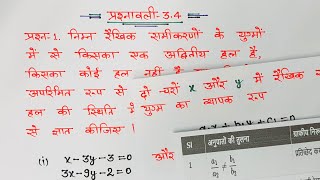 प्रश्नावली-3.4
प्रश्न-1. निम्न रैखिक समीकरणों के युग्मों
में से किसका एक अद्वितीय हल है,
किसका कोई हल नहीं है
अपरिमित रूप से दो चरों x और y में रैखिक
हल की स्थिति में युग्म का व्यापक रूप
से ज्ञात कीजिए।
(i) x-3y-3=0 और
3x-9y-2=0
SI अनुपातों की तुलना ग्राफीय
1 a₁/a₂ ≠ b₁/b₂ प्रतिच्छेद